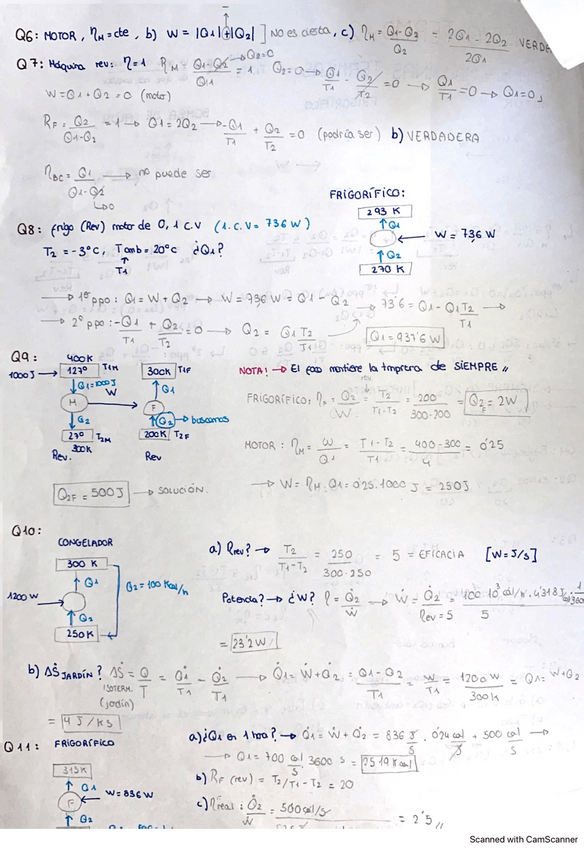 Q6: MOTOR, ηM=cte, b) W = |Q1|+|Q2| ] No es cierta, c) ηM = Q1-Q2 / Q2 = 2Q1 - 2Q2 / 2Q1 VERDA
Q7: Máquina rev: η=1 RM = Q1-Q2 / Q1 = 1 → Q2=0 → Q1/T1 - Q2/T2 = 0 → Q1/T1 = 0 → Q1=0
W=Q1+Q2=0 (motor)
RF = Q2 / Q1-Q2 = 1 → Q1=2Q2 → -Q1/T1 + Q2/T2 = 0 (podría ser) b) VERDADERA
ηBC = Q1 / Q1-Q2 → no puede ser
→0
FRIGORÍFICO:
293 K
Q1
W = 73,6 W
Q2
270 K
Q8: frigo (Rev) motor de 0,1 C.V (1.C.V = 736 W)
T2 = -3ºC, Tamb = 20ºC ¿Q1?
T1
→ 1er ppo: Q1 = W + Q2 → W = 73,6 W = Q1 - Q2 → 73'6 = Q1 - Q1T2/T1 →
→ 2º ppo: -Q1/T1 + Q2/T2 = 0 → Q2 = Q1 T2/T1 Q1 = 937'6 W
Q9:
400K
1000J → 127º T1M 300K T1F
Q1=1000J W Q1
M F
Q2 Q2 → buscamos
27º T2M 200K T2F
300K
Rev. Rev
NOTA! → El foco mantiene la tmprera de SIEMPRE
FRIGORÍFICO: = Q2/W = T2/T1-T2 = 200/300-200 = Q2F = 2W
MOTOR: ηM = W/Q1 = T1-T2/T1 = 400-300/4 = 0'25
→ W = ηM·Q1 = 0'25·1000 J = 250J
Q2F = 500J → SOLUCIÓN.
Q10:
CONGELADOR
300 K
Q1
1200 W
Q2 = 100 Kcal/h
Q2
250K
a) ηrev? → T2/T1-T2 = 250/300-250 = 5 = EFICACIA [W=J/s]
Potencia? → ¿W? η = Q2/W → W = Q2/ηrev = 100·10³ cal/h · 4'318J · 1/3600 / 5
= 23'2 W
b) ΔS JARDÍN? ΔS = Q/T = Q1/T1 - Q2/T1 → Q1 = W+Q2 = Q1-Q2/T1 = W/T1 = 1200 W/300K = Q1 = W+Q2
ISOTERM.
(jardín)
= 4 J/Ks
Q11: FRIGORIFICO
315K
Q1
F W = 836 W
Q2
a) ¿Q1 en 1 hora? → Q1 = W + Q2 = 836 J/s · 0'24 cal/J + 500 cal/s →
→ Q1 = 700 cal/s · 3600 s = 2519 Kcal
b) RF (rev) = T2/T1-T2 = 20
c) ηreal: Q2/W = 500cal/s = 2'5
Scanned with CamScanner